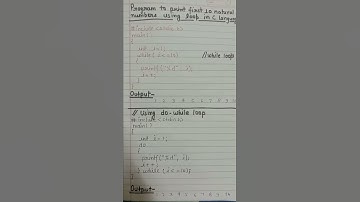 Program to print first 10 natural
numbers using loop in C language
#include<stdio.h>
main()
{
int i=1;
while(i<=10) //while loop
{
printf("%d", i);
i++;
}
Output-
1 2 3 4 5 6 7 8 9 10
// Using do-while loop
#include<stdio.h>
main()
{
int i=1;
do
{
printf("%d", i);
i++;
} while(i<=10)
}
Output-
1 2 3 4 5 6 7 8 9 10